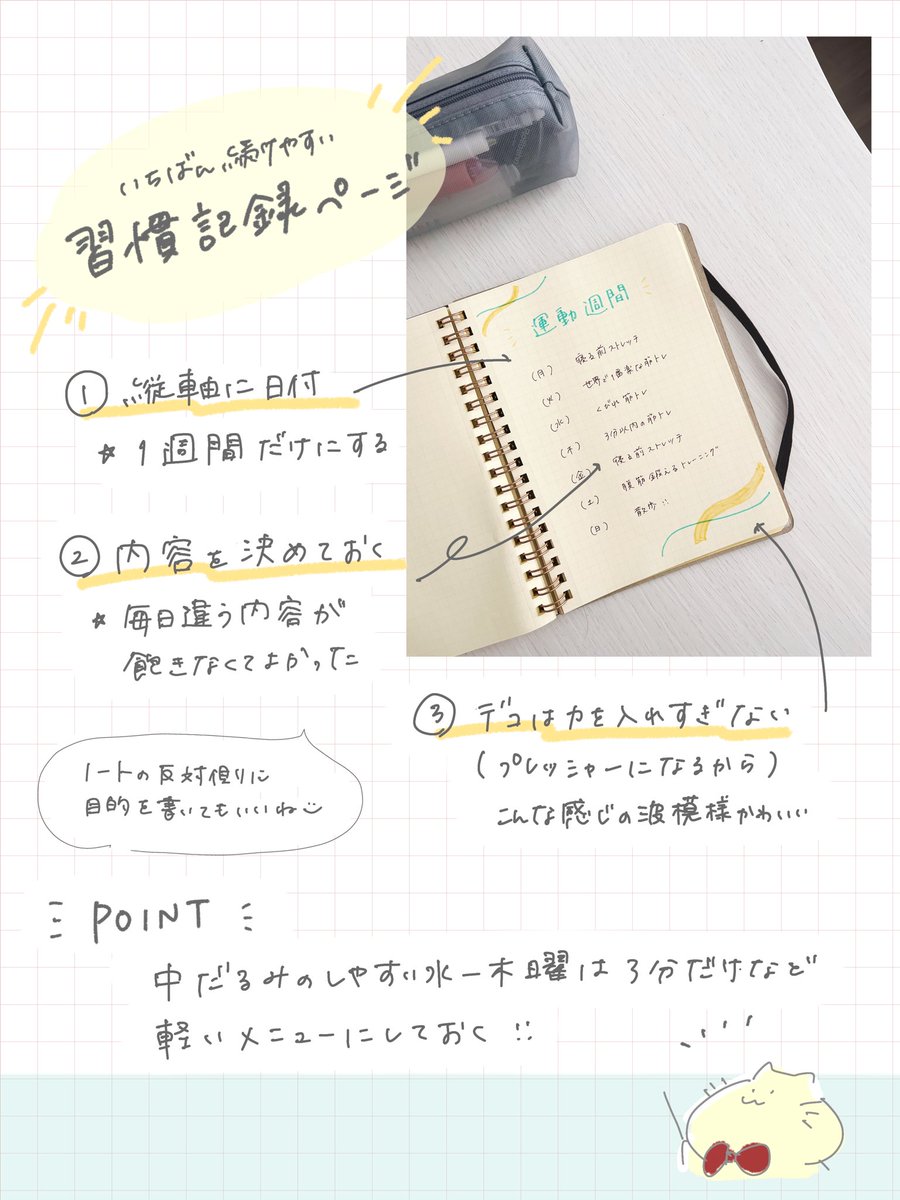 いちばん続けやすい
習慣記録ページ
① 縦軸に日付
☆ 1週間だけにする
② 内容を決めておく
☆ 毎日違う内容が
飽きなくてよかった
ノートの反対側に
目的を書いてもいいね
運動週間
(月) 寝る前ストレッチ
(火) 世界で1番楽な筋トレ
(水) くびれ筋トレ
(木) 3分以内の筋トレ
(金) 寝る前ストレッチ
(土) 腹筋鍛えるトレーニング
(日) 散歩!!
③ デコは力を入れすぎない
(プレッシャーになるから)
こんな感じの波模様かわいい
POINT
中だるみのしやすい水ー木曜は3分だけなど
軽いメニューにしておく!!